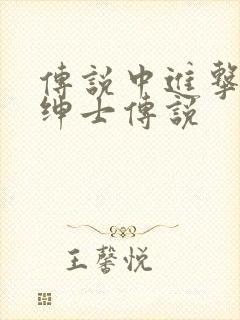 傳說中進擊
绅士傳説
王馨悦